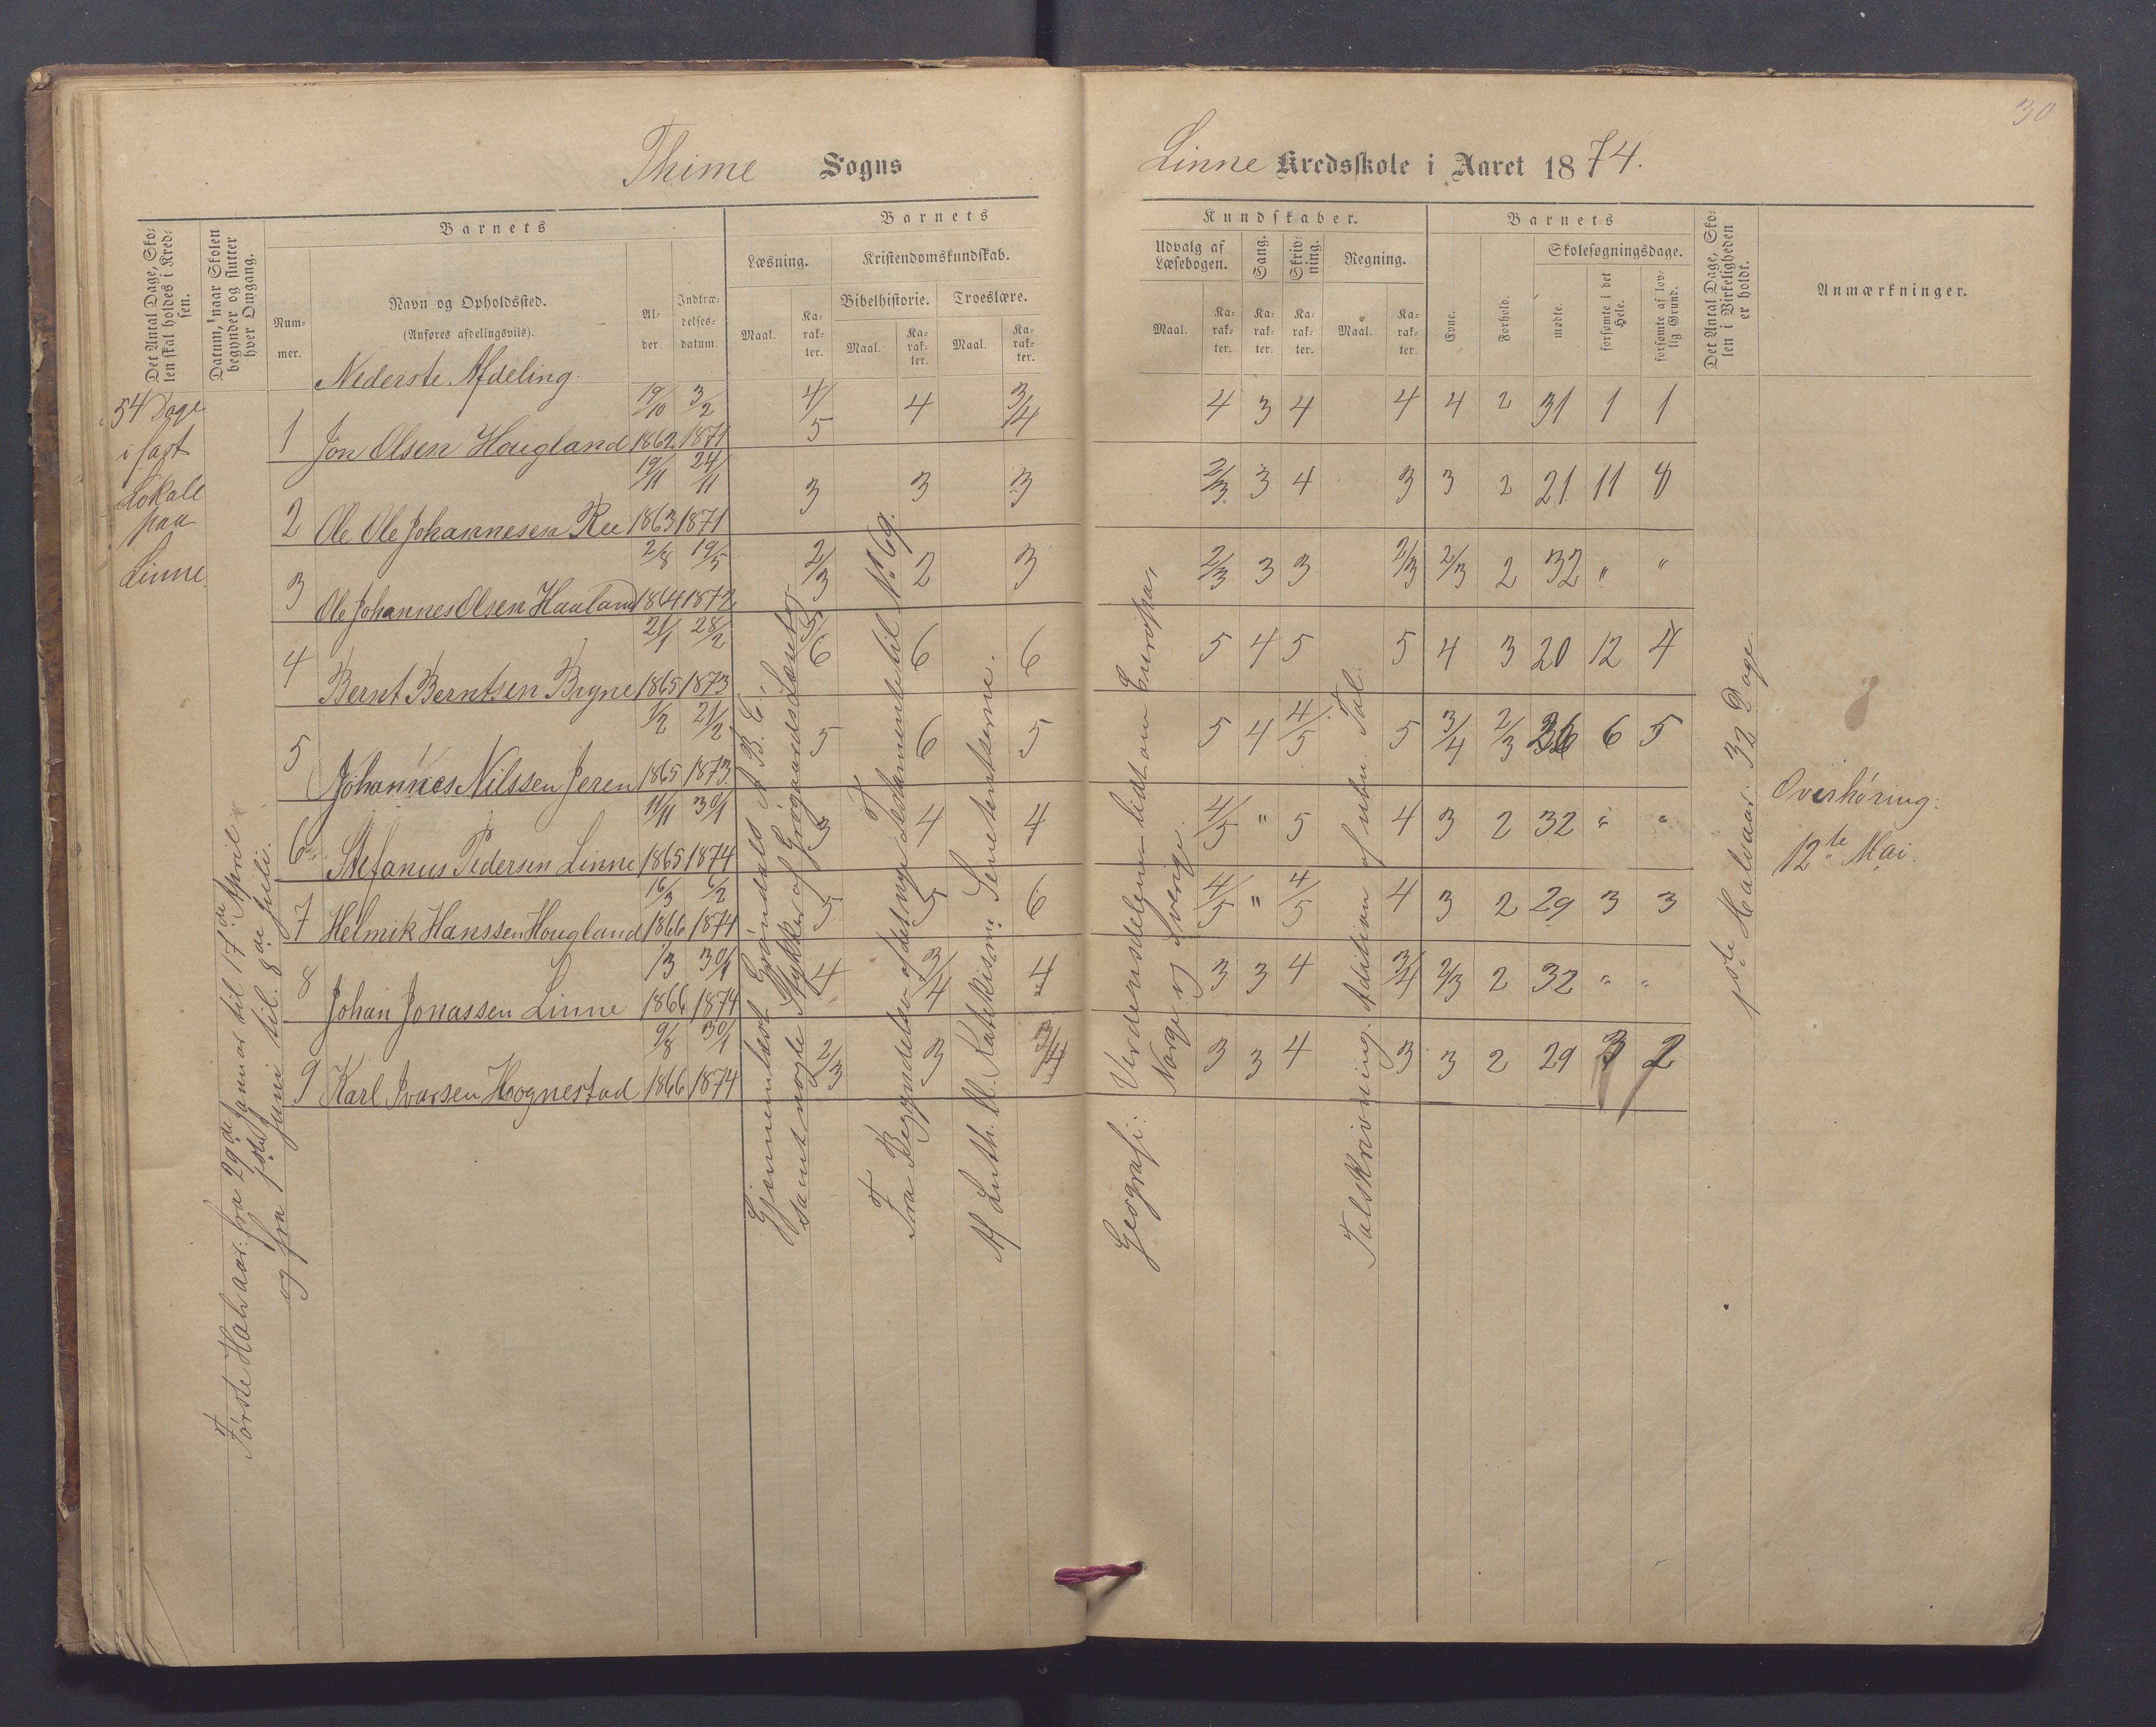 30
Thime Sogns
Linne Kredsskole i Aaret 1874.
Det Antal Dage, Skolen skal holdes i Kredsen.
Datum, naar Skolen begynder og slutter hver Omgang.
Barnets
Nummer.
Navn og Opholdssted.
(Anføres afdelingsviis).
Alder.
Indtrædelsesdatum.
Barnets
Læsning.
Kristendomskundskab.
Bibelhistorie.
Troeslære.
Maal.
Karakter.
Maal.
Karakter.
Maal.
Karakter.
Kundskaber.
Udvalg af Læsebogen.
Sang.
Skrivning.
Regning.
Maal.
Karakter.
Karakter.
Karakter.
Maal.
Karakter.
Barnets
Evne.
Forhold.
Skolesøgningsdage.
mødte.
forsømte i det Hele.
forsømte af lovlig Grund.
Det Antal Dage, Skolen i Virkeligheden er holdt.
Anmærkninger.
54 Dage
i fast
Lokale
paa
Linne
Nederste Afdeling.
1 Jon Olsen Hougland 19/10 1862 3/2 1871 4/5 4 3/4 4 3 4 4 4 2 31 1 1
2 Ole Ole Johannesen Ree 19/11 1863 24/11 1871 3 3 3 2/3 3 4 3 3 2 21 11 8
3 Ole Johannes Olsen Haaland 2/8 1864 19/5 1872 2/3 2 3 2/3 3 3 2/3 2/3 2 32 " "
4 Bernt Berntsen Bryne 21/1 1865 28/2 1873 5/6 6 6 5 4 5 5 4 3 20 12 4
5 Johannes Nilssen Jeren 1/2 1865 21/2 1873 5 6 5 5 4 4/5 5 3/4 2/3 26 6 5
6 Stefanus Pedersen Linne 11/11 1865 30/1 1874 3 4 4 4/5 " 5 4 3 2 32 " "
7 Helmik Hanssen Hougland 16/3 1866 6/2 1874 5 5 6 4/5 " 4/5 4 3 2 29 3 3
8 Johan Jonassen Linne 1/3 1866 30/1 1874 4 3/4 4 3 3 4 3/4 2/3 2 32 " "
9 Karl Ivarsen Hognestad 9/8 1866 30/1 1874 2/3 3 3/4 3 3 4 3 3 2 29 3 2
Første Halvaar: fra 29de Januar til 17de April
og fra 1ste Juni til 8de Juli.
Gjennemlæst Grøndals A B C
samt nogle Stykker af Grøgaards Læsebog
Fra Begyndelsen af det nye Testamente til No 69.
Af Luth. Kl. Katekisme: Sententserne.
Geografi: Verdensdelene lidt om Europa,
Norge og Sverige.
Talskrivning. Addition af ubn. Tal.
1ste Halvaar: 32 Dage
Overhøring:
12te Mai.